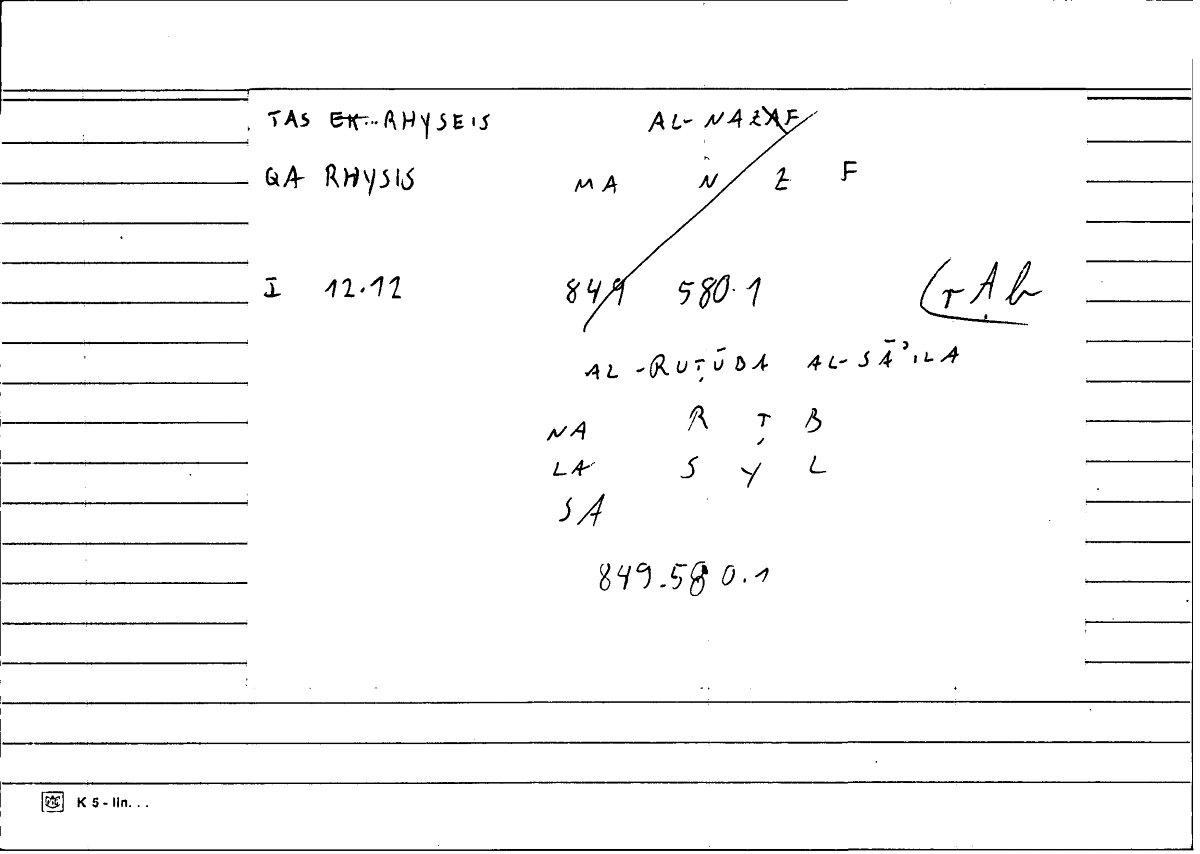 TAS EK...RHYSEIS AL-NAZAF
QA RHYSIS MA N Z F
I 12.12 849 580.1
AL-RUṬŪBA AL-SĀʾILA
NA R Ṭ B
LA S Y L
SA
849.580.1
K 5 - lin. . .